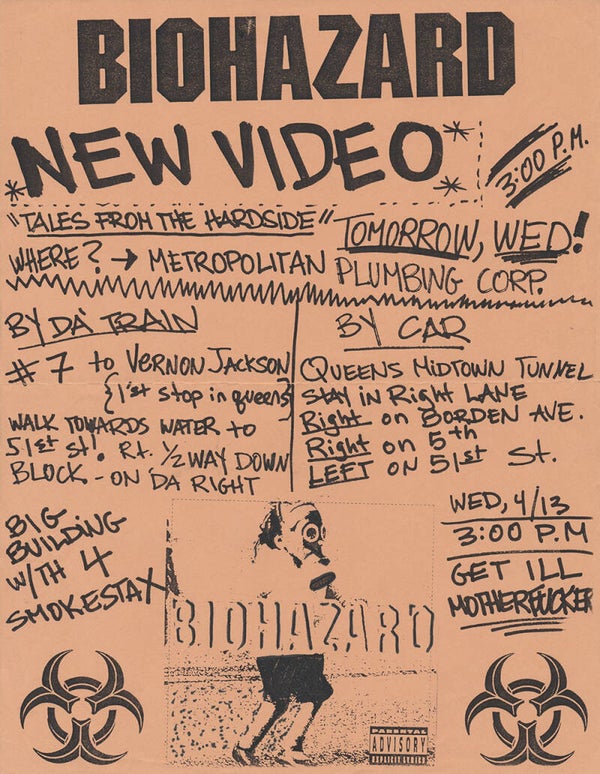 BIOHAZARD
*NEW VIDEO*
3:00 P.M.
"TALES FROM THE HARDSIDE"
TOMORROW, WED!
WHERE? → METROPOLITAN PLUMBING CORP.
BY DA' TRAIN
#7 to VERNON JACKSON
{1'st stop in queens}
WALK TOWARDS WATER to
51st st. Rt. 1/2 WAY DOWN
BLOCK - ON 'DA RIGHT
BY CAR
QUEENS MIDTOWN TUNNEL
STAY in Right LANE
Right on BORDEN AVE.
Right on 5th
LEFT ON 51st St.
BIG
BUILDING
W/TH 4
SMOKESTAX
WED, 4/13
3:00 P.M
GET ILL
MOTHERFUCKER
BIOHAZARD
PARENTAL
ADVISORY
EXPLICIT LYRICS